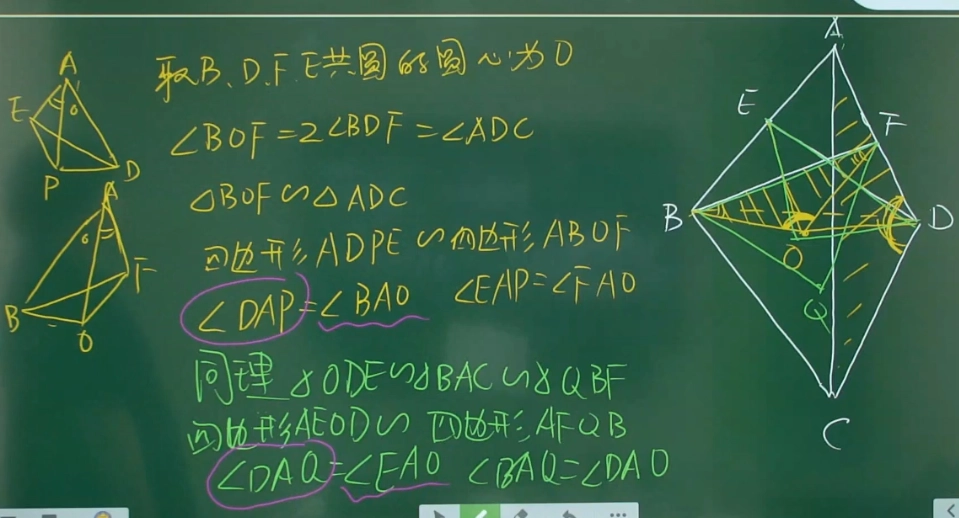 取B、D、F、E共圆的圆心为O
∠BOF=2∠BDF=∠ADC
△BOF∽△ADC
四边形ADPE∽四边形ABOF
∠DAP=∠BAO ∠EAP=∠FAO
同理△ODE∽△BAC∽△QBF
四边形AEOD∽四边形AFQB
∠DAQ=∠EAO ∠BAQ=∠DAO
A
E
P
D
A
B
F
O
A
E
F
B
D
O
Q
C